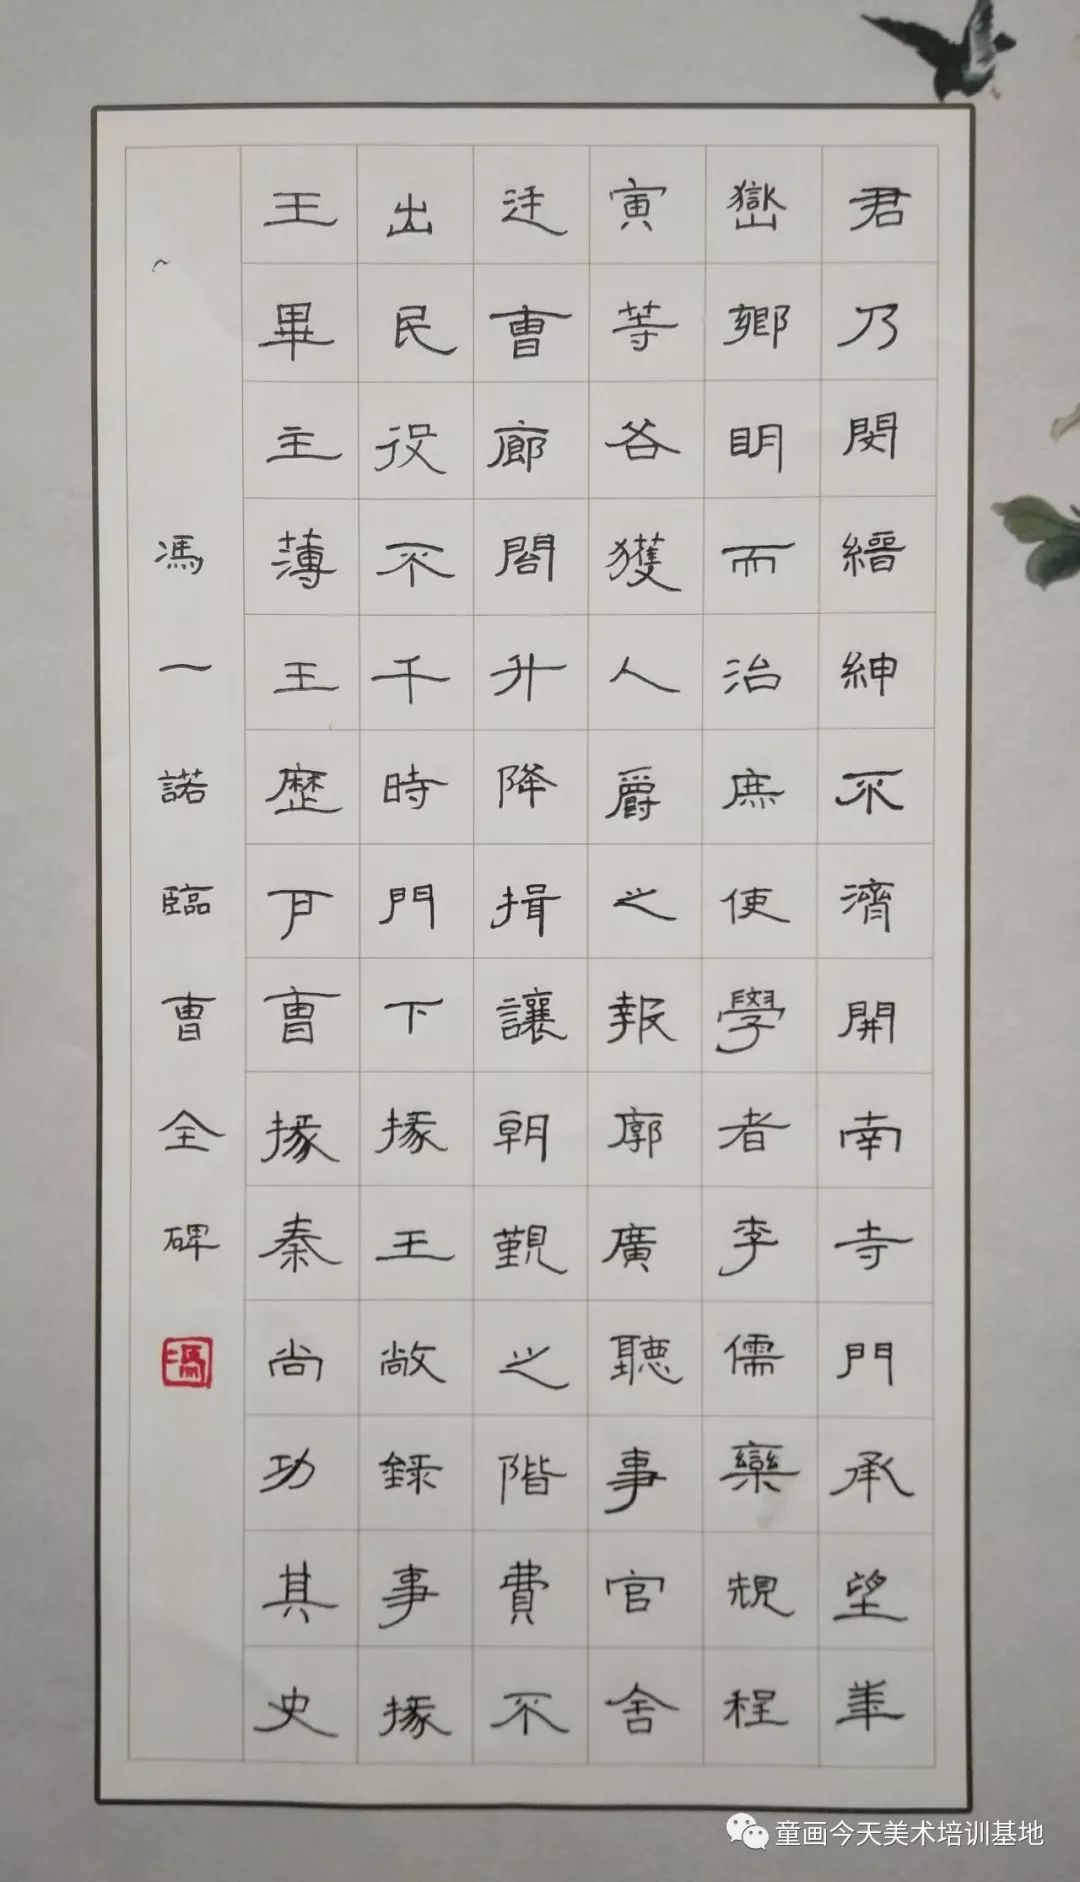 君乃閔縉紳不濟開南寺門承望華
嶽鄉眀而治庶使學者李儒欒規程
寅等各獲人爵之報廓廣聽事官舍
廷曹廊閤升降揖讓朝覲之階費不
出民役不干時門下掾王敞錄事掾
王畢主薄王歷戶曹掾秦尚功其史
馮一諾臨曹全碑
馮
童画今天美术培训基地